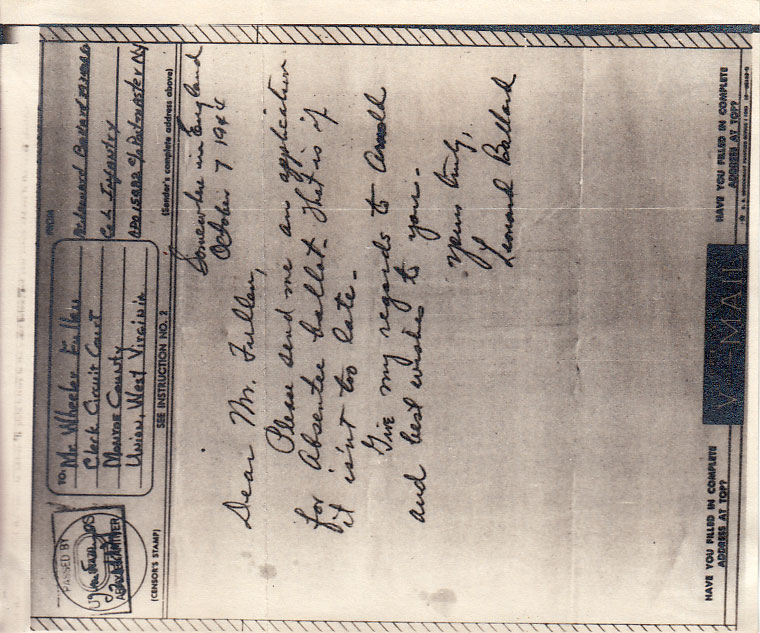 PASSED BY
ARMY EXAMINER
(CENSOR'S STAMP)
TO: Mr. Wheeler Fullen
Clerk Circuit Court
Monroe County
Union, West Virginia
SEE INSTRUCTION NO. 2
FROM
Ballard
Co L Infantry
APO 15882 c/o Postmaster NY
(Sender's complete address above)
Somewhere in England
October 7 1944
Dear Mr. Fullen,
Please send me an application
for Absentee ballot. That is if
it isn't too late.
Give my regards to Arnold
and best wishes to you.
Yours truly,
Leonard Ballard
HAVE YOU FILLED IN COMPLETE
ADDRESS AT TOP?
V···—MAIL
HAVE YOU FILLED IN COMPLETE
ADDRESS AT TOP?